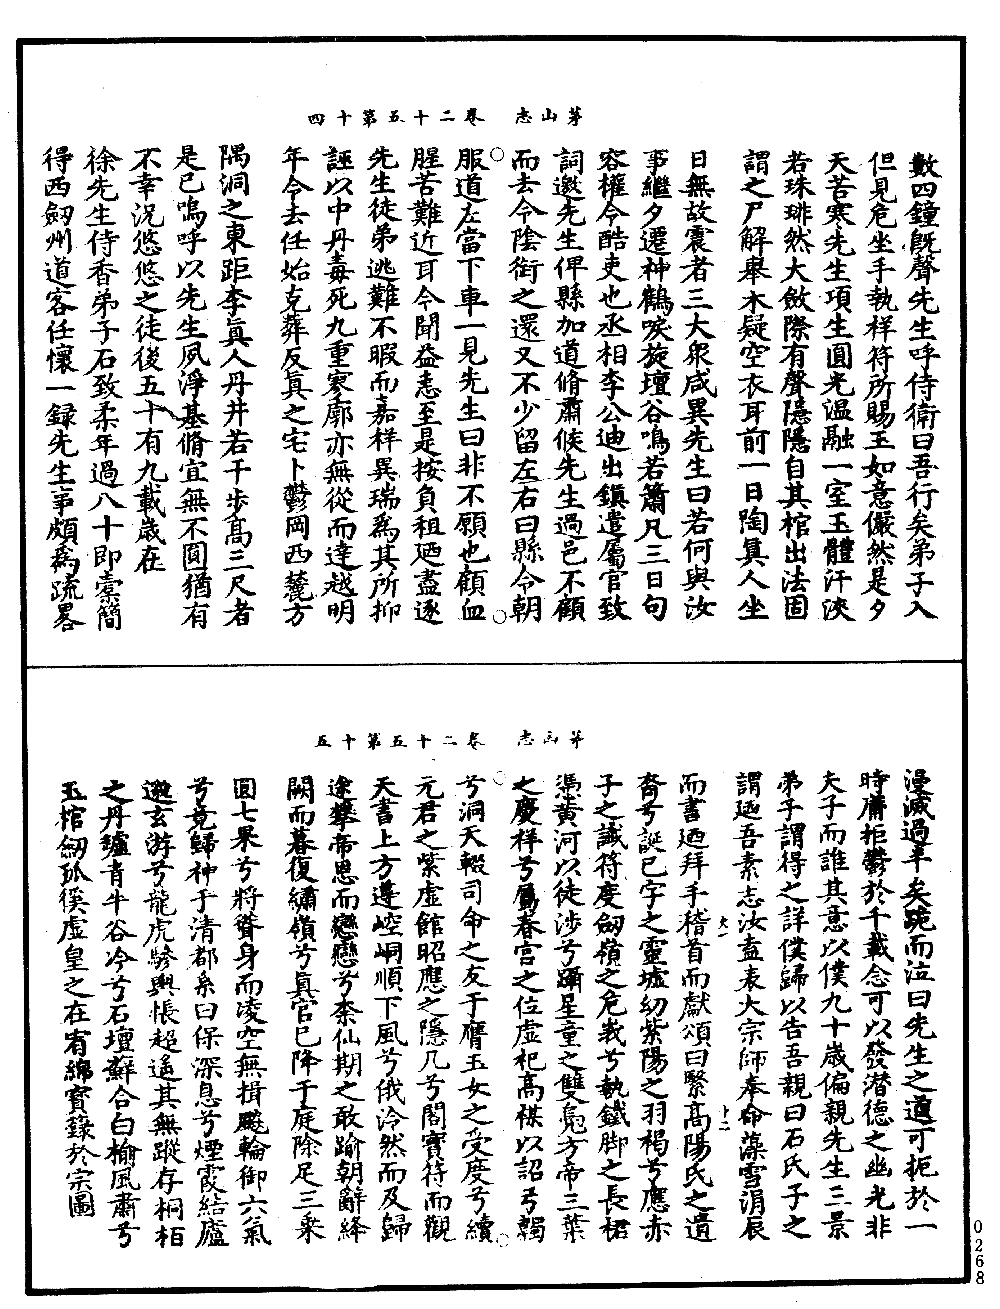 茅山志　卷二十五第十四
數四鐘旣聲先生呼侍衛曰吾行矣弟子入
但見危坐手執祥符所賜玉如意儼然是夕
天苦寒先生項生圓光溫融一室玉體汗浹
若珠琲然大斂際有聲隱隱自其棺出法固
謂之尸解舉木疑空衣耳前一日陶真人坐
日無故震者三大衆咸異先生曰若何與汝
事繼夕遷神鶴唳旋壇谷鳴若簫凡三日句
容權令酷吏也丞相李公迪出鎮遣屬官致
詞邀先生俾縣加道脩肅候先生過邑不顧
而去令陰銜之還又不少留左右曰縣令朝
服道左當下車一見先生曰非不願也顧血
腥苦難近耳令聞益恚至是按負租廼盡逐
先生徒弟逃難不暇而嘉祥異瑞爲其所抑
誣以中丹毒死九重寥廓亦無從而達越明
年令去任始克葬反真之宅卜鬱岡西麓方
隅洞之東距李眞人丹井若干步高三尺者
是已嗚呼以先生夙淨基脩宜無不圓猶有
不幸況悠悠之徒後五十有九載歲在
徐先生侍香弟子石致柔年過八十即橐簡
得西劒州道客任懷一録先生事頗爲疏畧
茅山志　卷二十五第十五
漫滅過半矣跪而泣曰先生之道可扼於一
時庸拒鬱於千載念可以發潜德之幽光非
夫子而誰其意以僕九十歲偏親先生三景
弟子謂得之詳僕歸以告吾親曰石氏子之
謂廼吾素志汝盍表大宗師奉命藻雪涓辰
而書廼拜手稽首而獻頌曰緊高陽氏之遺
裔兮誕巳字之靈墟幼紫陽之羽褐兮應赤
子之讖符度劒嶺之危峩兮執鐵脚之長裾
馮黄河以徒渉兮躡星童之雙鳧方帝三葉
之慶祥兮屬春宮之位虚祀高禖以詔弓韣
兮洞天輟司命之友于膺玉女之受度兮續
元君之紫虚館昭應之隱几兮閣寶符而觀
天書上方遵崆峒順下風兮俄泠然而及歸
途攀帝恩而戀戀兮柰仙期之敢踰朝辭絳
闕而暮復繡嶺兮真官已降于庭除足三乘
圓七果兮將聳身而凌空無揖飈輪御六氣
兮竟歸神于清都系曰保深息兮煙霞結廬
遨玄游兮龍虎驂輿悵超遥其無蹤存桐栢
之丹壚青牛谷冷兮石壇蘚合白榆風肅兮
玉棺劒孤徯虚皇之在宥綿寳籙於宗圖
大一
十二
0268